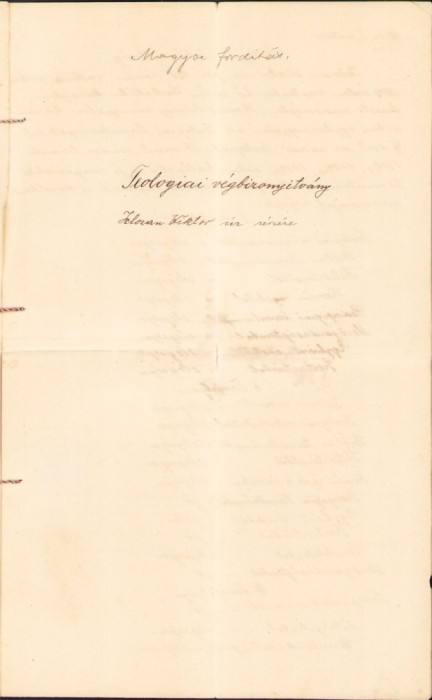 Magyar fordítás.
Teologiai végbizonyitvány
Viktor úr részére